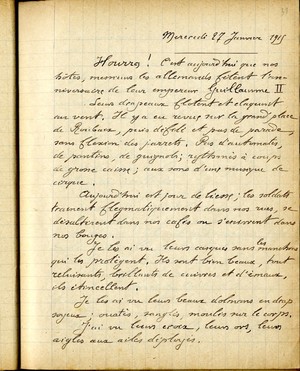 Mercredi 27 Janvier 1915
Hourra! C'est aujourd'hui que nos
hôtes, messieurs les allemands fêtent l'an-
niversaire de leur empereur Guillaume II
Leurs drapeaux flottent et claquent
au vent. Il y a eu revue sur la grand place
de Roubaix, puis défilé et pas de parade,
sans flexion des jarrets. Pas d'automates,
de pantins, de guignols; rythmés à coups
de grosse caisse; aux sons d'une musique de
cirque.
Aujourd'hui est jour de liesse; les soldats
trainent flegmatiquement dans nos rues, se
désaltèrent dans nos cafés ou s'enivrent dans
nos bouges.
Je les ai vu leurs casques sans les manchons
qui les protègent. Ils sont bien beaux, tout
reluisants, brillants de cuivres et d'émaux,
ils étincellent.
Je les ai vu leurs beaux dolmans en drap
soyeux; ouatés, sanglés, moulés sur le corps.
J'ai vu leurs croix, leurs ors, leurs
aigles aux ailes déployés.